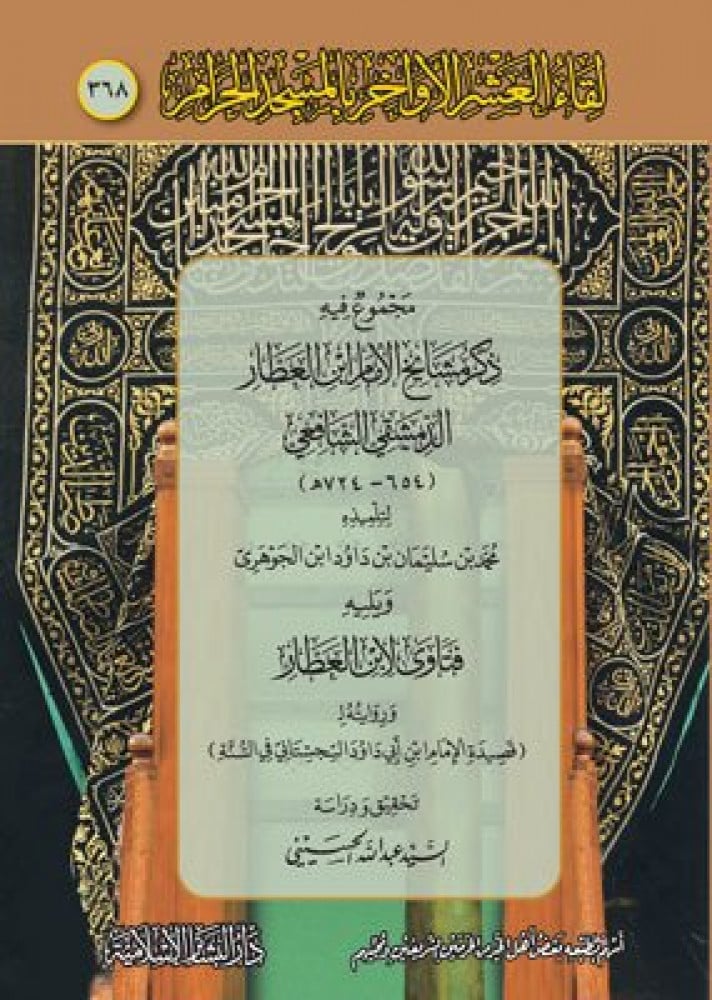 لِقَاءُ العَشْرِ الأَوَاخِرِ بِالمَسْجِدِ الحَرَامِ
٣٦٨
مَجْمُوعٌ فِيهِ
ذِكْرُ مَشَايِخِ الإِمَامِ ابْنِ العَطَّارِ
الدِّمَشْقِيِّ الشَّافِعِيِّ
(٦٥٤ - ٧٢٤هـ)
لِتِلْمِيذِهِ
مُحَمَّد بْن سُلَيْمَان بْن دَاوُد ابْن الجَوْهَرِيّ
وَيَلِيهِ
فَتَاوَى لِابْنِ العَطَّارِ
وَرِوَايَتُهُ لِـ
(قَصِيدَةِ الإِمَامِ ابْنِ أَبِي دَاوُدَ السِّجِسْتَانِيِّ فِي السُّنَّةِ)
تَحْقِيق وَدِرَاسَة
السَّيِّد عبد الله الحُسَيْنِي
أسهم بطبعه بعض أهل الخير من الحرمين الشريفين ومحبيهم
دار البشائر الإسلامية